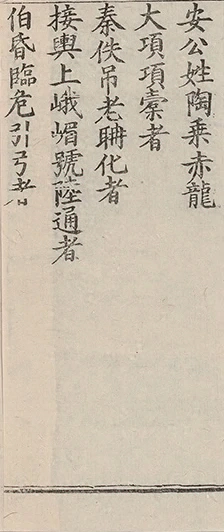 安公姓陶乘赤龍
大項項橐者
秦佚吊老聃化者
接輿上峨嵋號陸通者
伯昏臨危引弓者